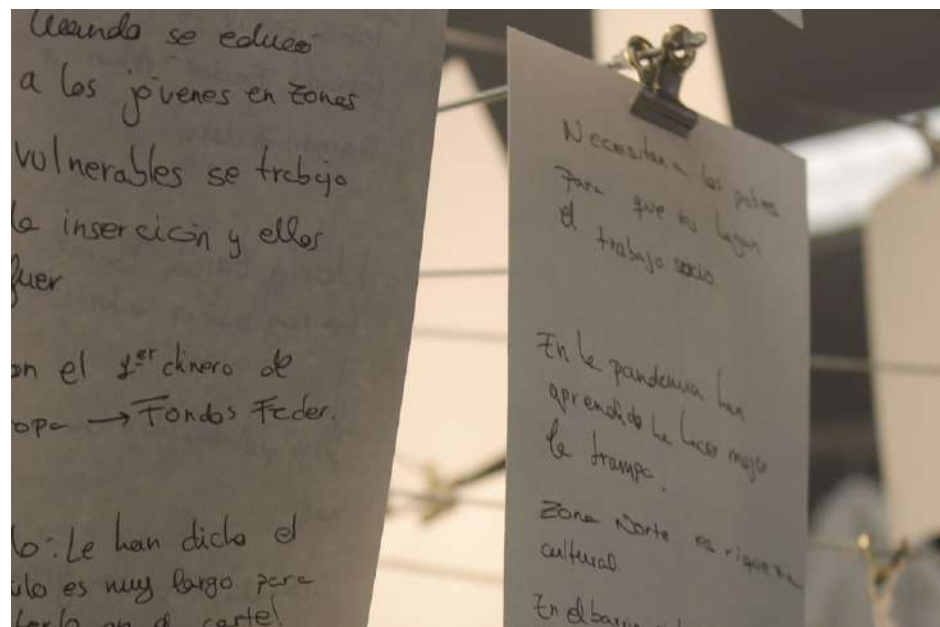 Cuando se educó
a los jóvenes en zonas
vulnerables se trabajo
la insercición y ellos
fuer
on el 1er dinero de
opa → Fondos Feder.
lo: Le han dicho el
ulo es muy largo para
terlo en el cartel
Necesitan a los pobres
Para que les hagan
el trabajo sucio.
En la pandemia han
aprendido ha hacer mejor
la trampa.
Zona Norte es riqueza
cultural.
En el barrio